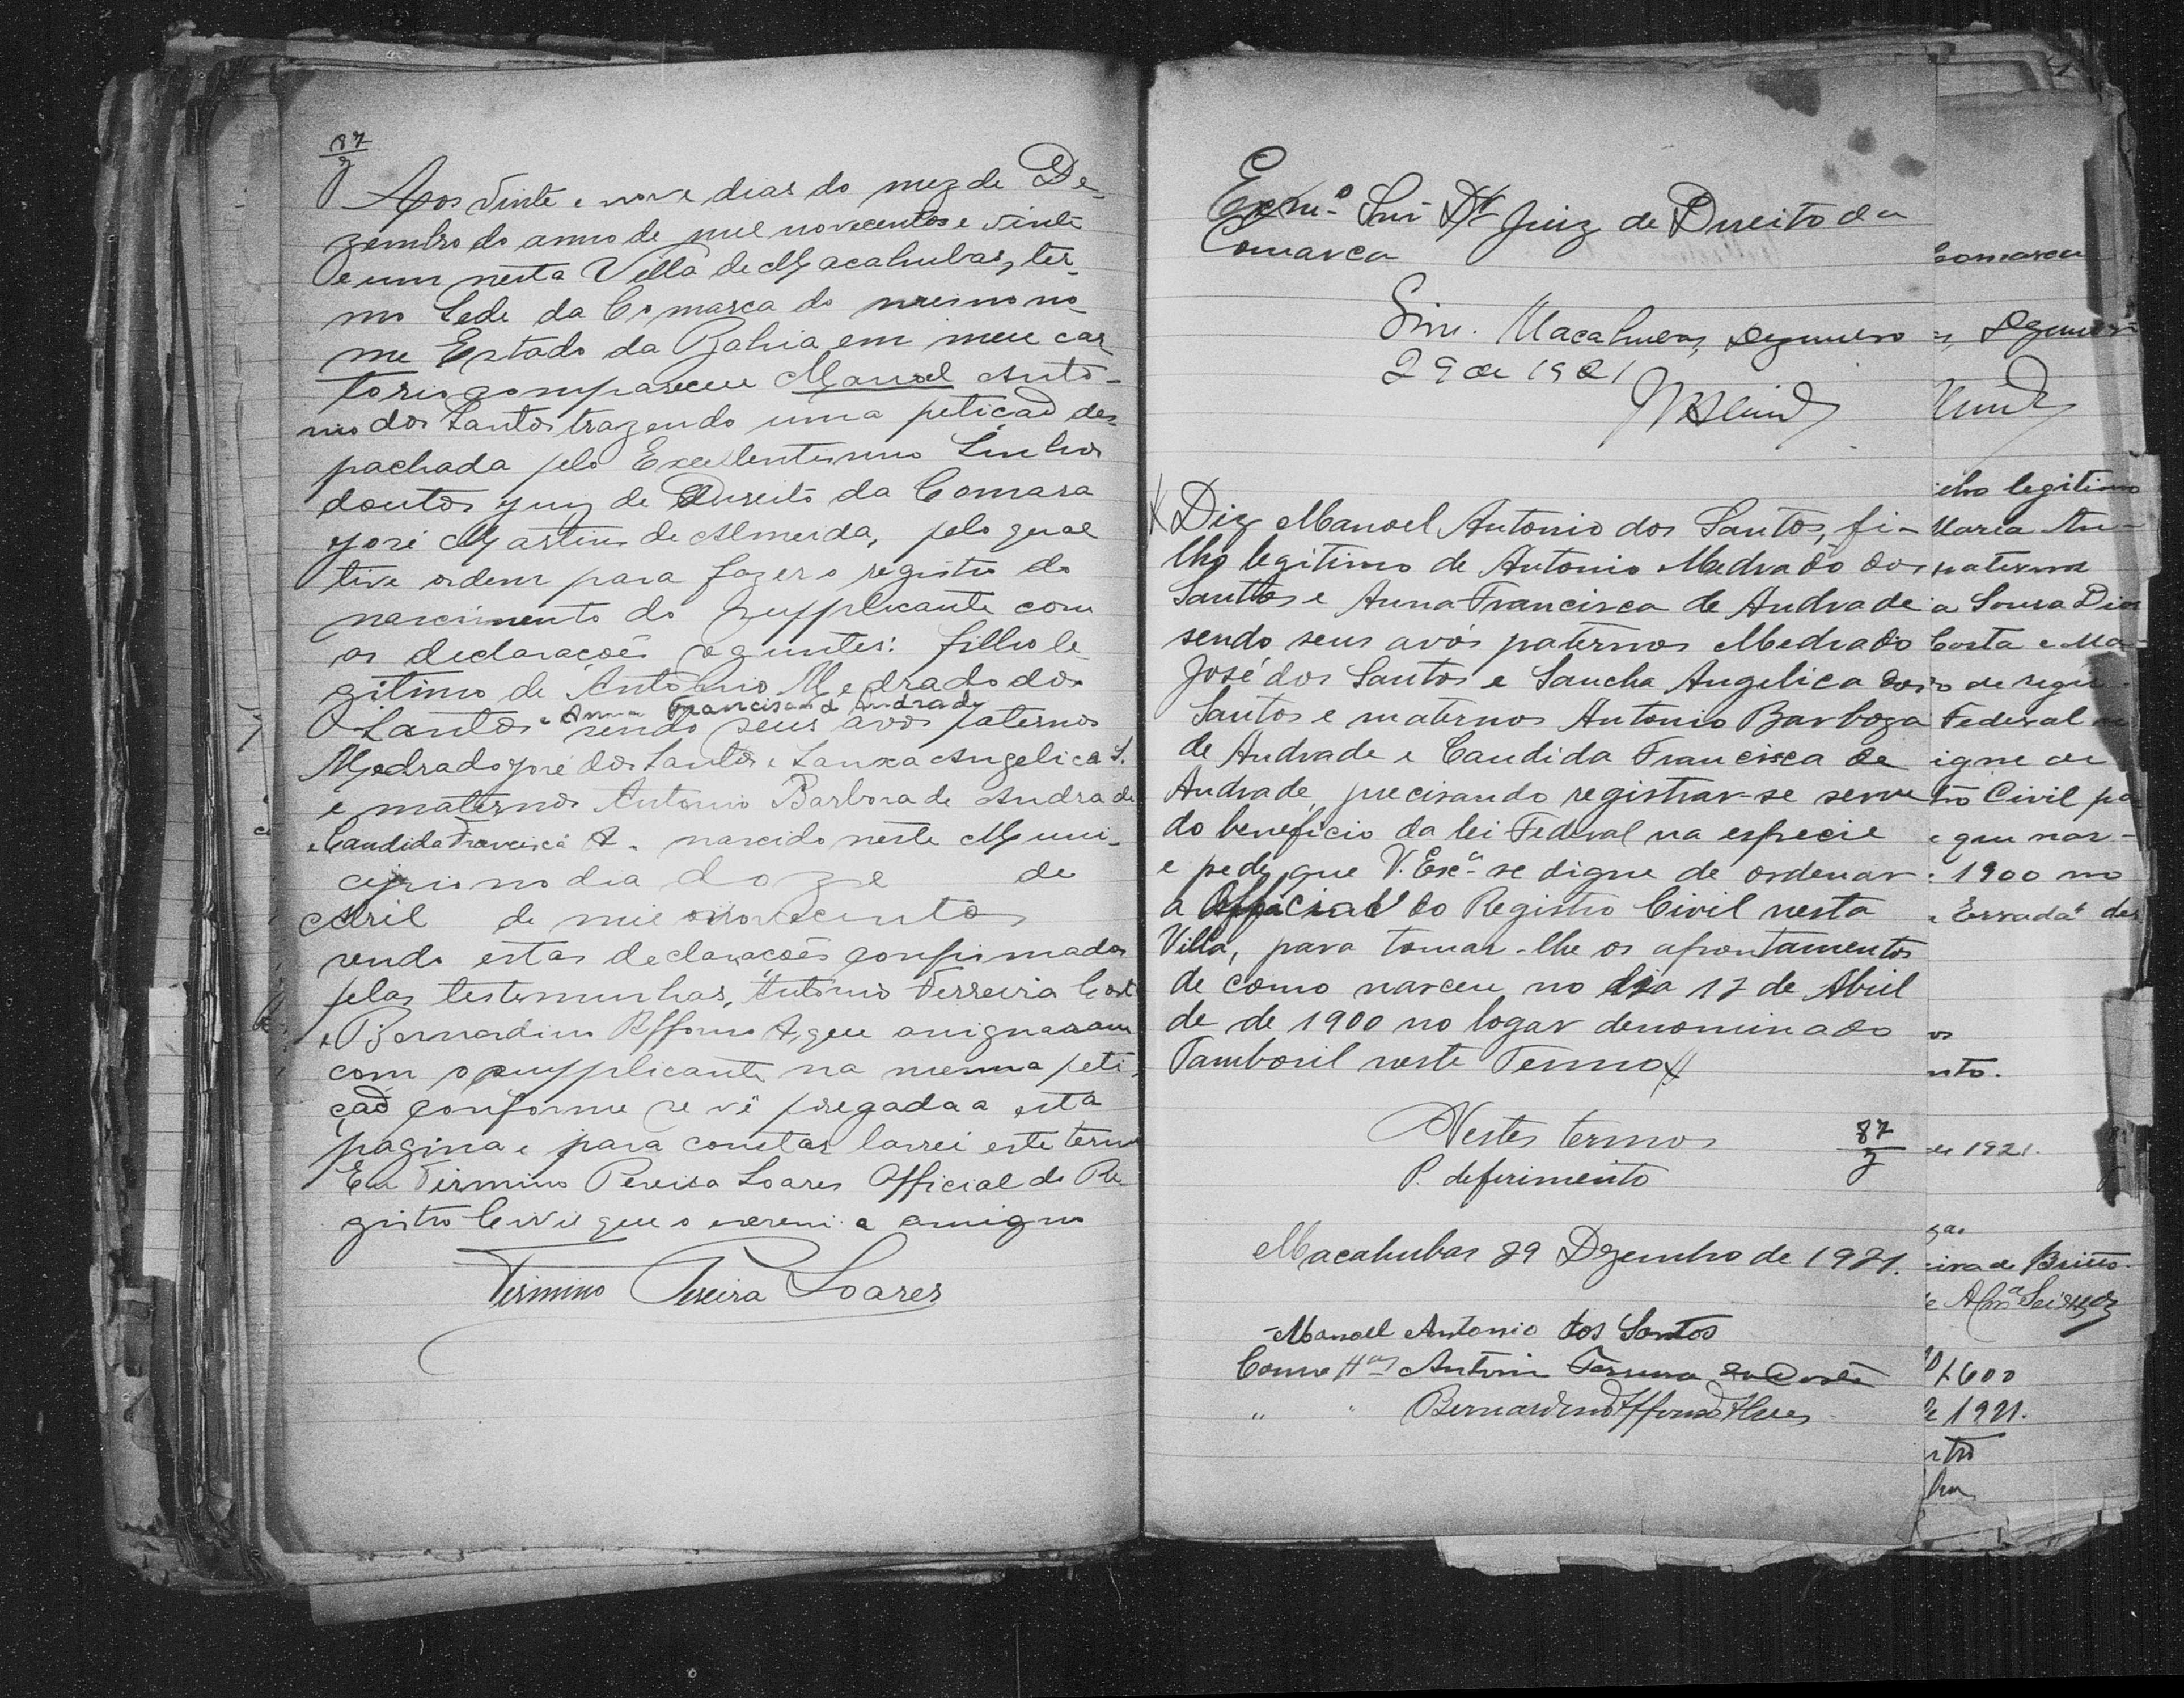 87
Aos vinte e nove dias do mez de De-
zembro do anno de mil novecentos e vinte
e um nesta Villa de Macahubas, ter-
mo Sede da Comarca do mesmo no-
me Estado da Bahia em meu car-
torio compareceu Manoel Anto-
nio dos Santos trazendo uma petição des-
pachada pelo Excellentissimo Senhor
doutor Juiz de Direito da Comarca
José Martins de Almeida, pelo qual
tive ordem para fazer o registro do
nascimento do supplicante com
as declarações seguintes: filho le-
gitimo de Antonio Medrado dos
e Anna Francisca d Andrade
Santos sendo seus avós paternos
Medrado José dos Santos e Sanxa Angelica S.
e maternos Antonio Barbosa de Andrade
e Candida Francisca A. nascido neste Muni-
cipio no dia doze de
Abril de mil novecentos
sendo estas declarações confirmadas
pelas testemunhas, Antonio Ferreira Cost
e Bernardino Affonso A, que assignaram
com o supplicante na mesma peti-
ção conforme se vê pregada a esta
pagina e para constar lavrei este termo
Eu Firmino Pereira Soares Official do Re-
gistro Civil que o escrevi e assigno
Firmino Pereira Soares
Exmº Snr Dr Juiz de Direito da
Comarca
Sim. Macahubas, Dezembro
29 de 1921
X Diz Manoel Antonio dos Santos, fi-
lho legitimo de Antonio Medrado dos
Santos e Anna Francisca de Andrade
sendo seus avós paternos Medrado
José dos Santos e Sancha Angelica dos
Santos e maternos Antonio Barboza
de Andrade e Candida Francisca de
Andrade, precisando registrar-se serve
do beneficio da lei Federal na especie
e pede que V. Excª se digne de ordenar
a Official do Registro Civil nesta
Villa, para tomar-lhe os apontamentos
de como nasceu no dia 12 de Abril
de de 1900 no logar denominado
Tamboril neste Termo
Nestes termos
87
P. deferimento
Macahubas 29 Dezembro de 1921.
Manoel Antonio dos Santos
Como tªs Antonio Ferreira da Costa
" " Bernardino Affonso Alves
comarca
s, Dezembro
ilho legitimo
Maria An-
paterna
a Sousa Dias
Costa e Ma-
o de regis-
Federal
igne de
tro Civil pa
e que nas-
1900 no
Errada" des
os
nto.
de 1921.
eira de Britto
$600
de 1921.